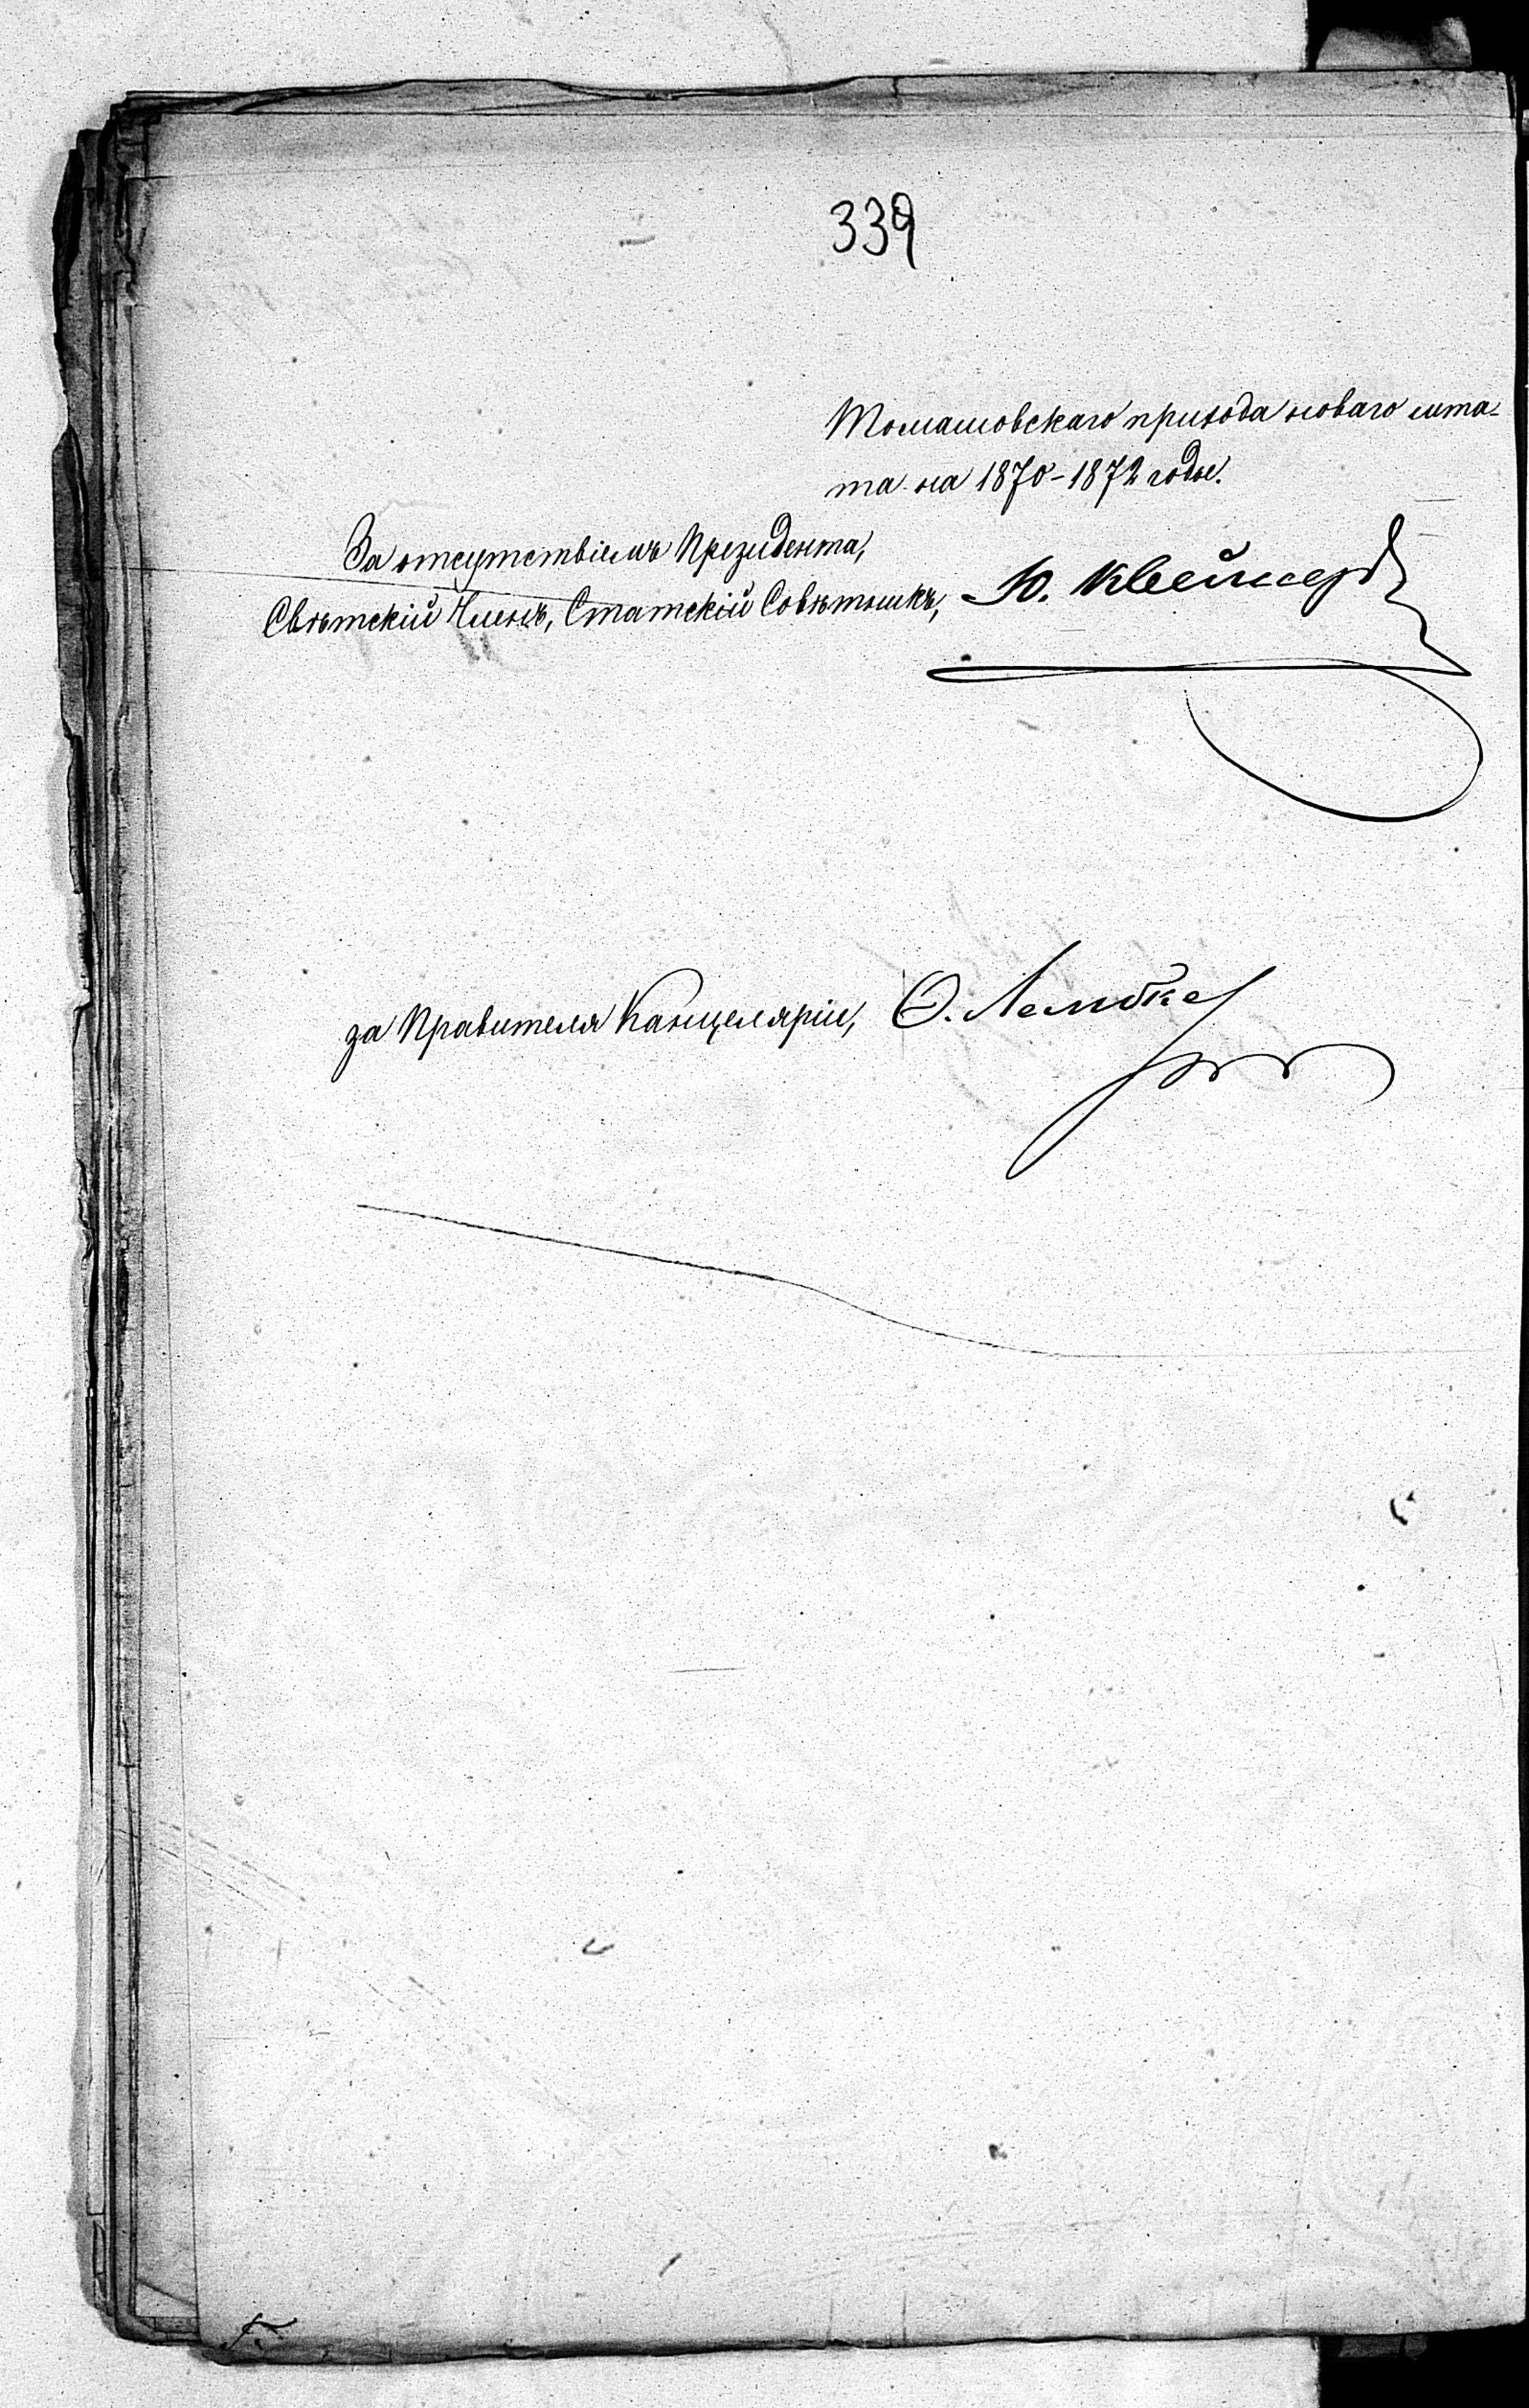 339
Томашовскаго прихода новаго шта-
та на 1870-1872 годы.
За отсутствіемъ Президента,
Свѣтскій Членъ, Статскій Совѣтникъ, Ю. Квейссер
за Правителя Канцеляріи, О. Лембке